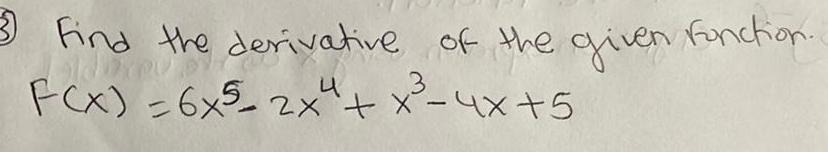 3) Find the derivative of the given function.
F(x) = 6x⁵ - 2x⁴ + x³ - 4x + 5